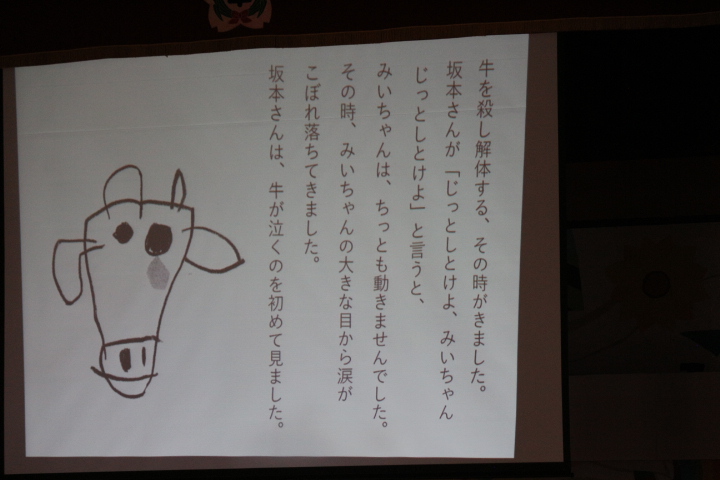 牛を殺し解体する、その時がきました。
坂本さんが「じっとしとけよ、みいちゃん
じっとしとけよ」と言うと、
みいちゃんは、ちっとも動きませんでした。
その時、みいちゃんの大きな目から涙が
こぼれ落ちてきました。
坂本さんは、牛が泣くのを初めて見ました。